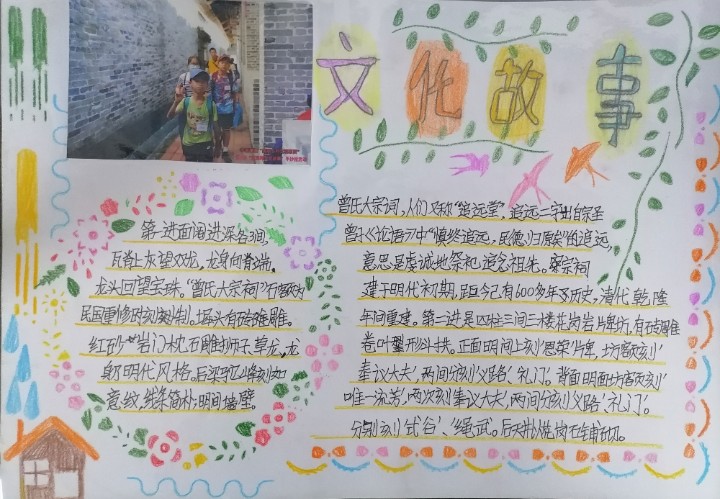 文化故事
第一进面阔进深各3间,
瓦脊上灰塑双龙,龙身向脊端,
龙头回望宝珠。“曾氏大宗祠”石额为
民国重修时刻制。墀头有砖雕。
红砂岩门枕石雕折子、草龙,龙
身明代风格。后梁
意纹,线条简朴;明间墙壁。
曾氏大宗祠,人们又称“追远堂”,追远二字出自宗圣
曾《论语》中“慎终追远,民德归厚矣”的追远,
意思是虔诚地祭祀,追念祖先。
建于明代初期,距今已有600多年历史,清代乾隆
年间重建。第二进是四柱三间三楼花岗岩牌坊,有砖雕
卷叶型斗拱。正面明间上刻“恩荣”牌,坊额刻
奉议大夫’,两间分刻‘义路’、‘礼门’。背面明面坊额刻
唯一流芳’,两次刻‘奉议大夫’,两间分刻‘义路’、‘礼门’。
分别刻‘式谷’、‘绳武’。